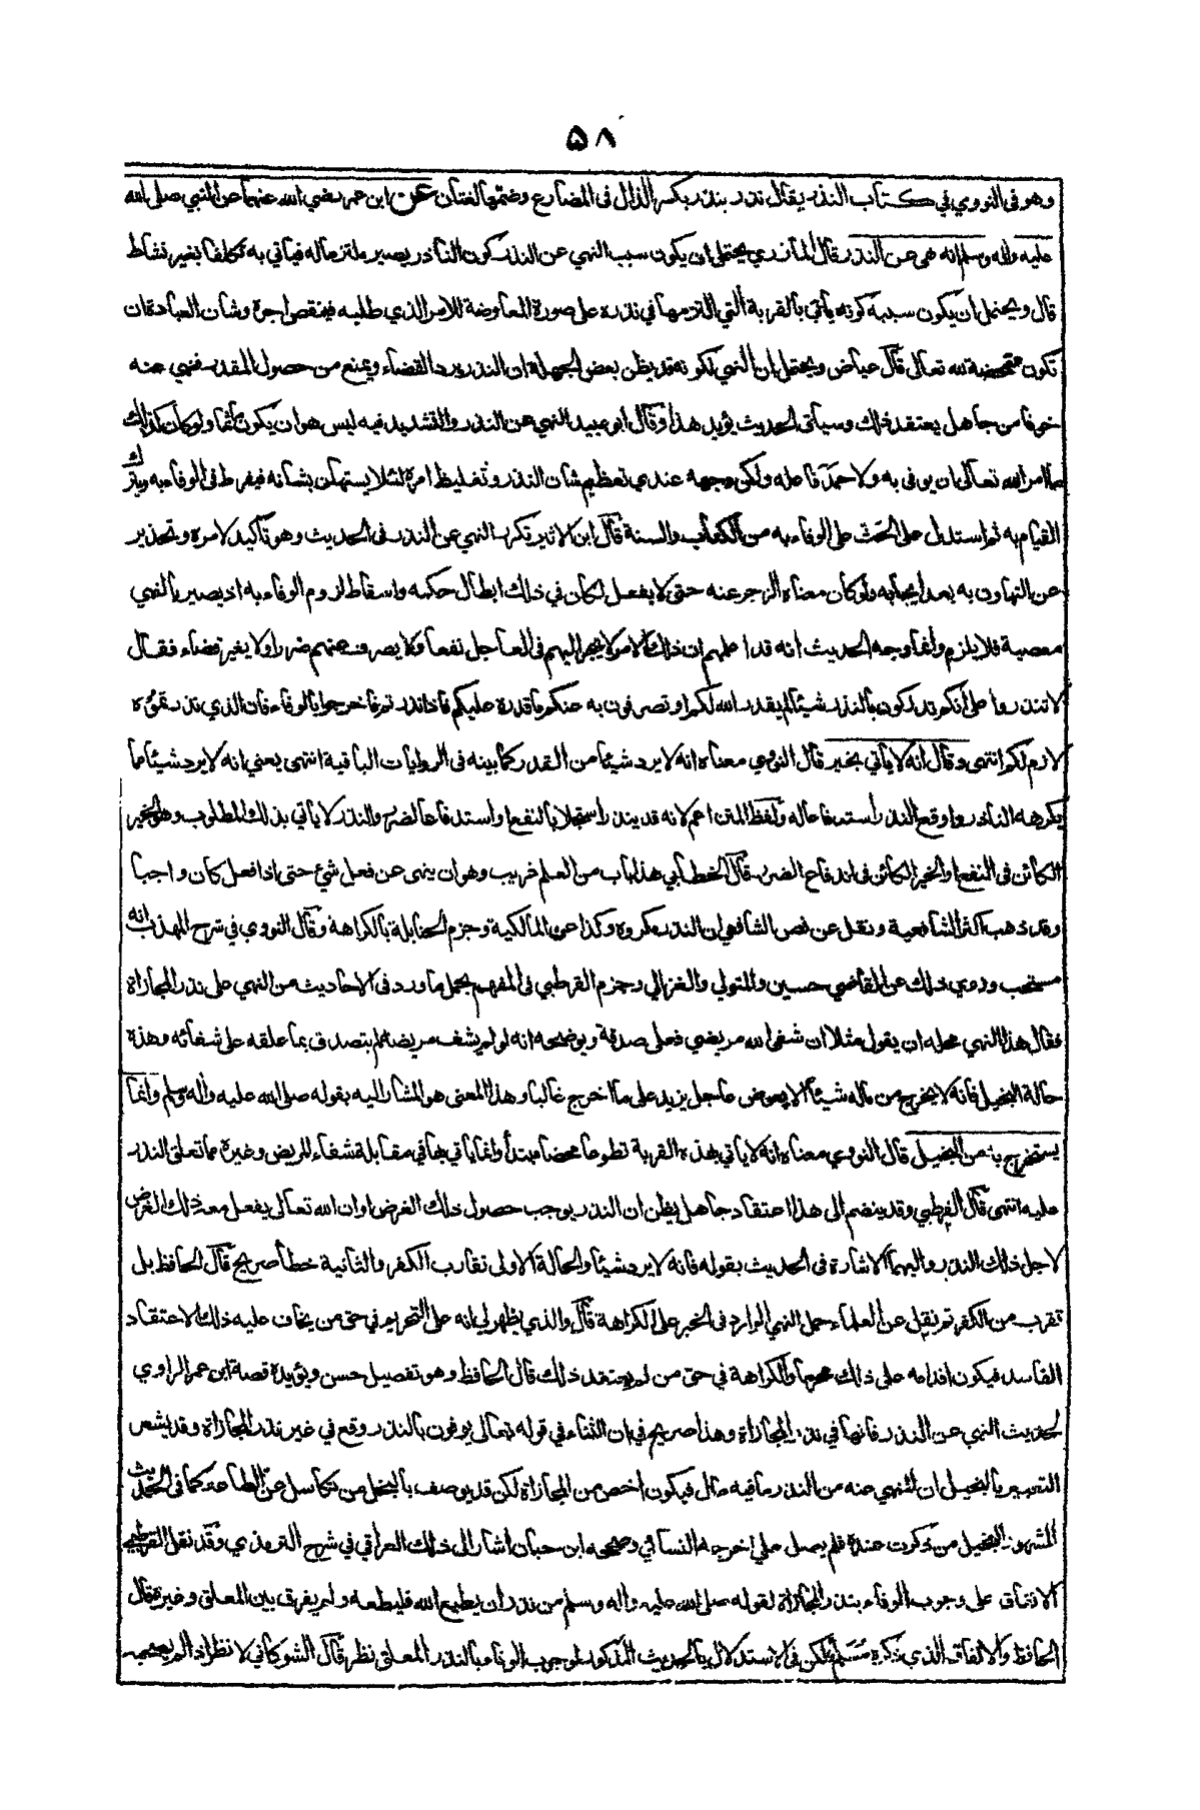 ٥٨
وهو فى النووي في كتاب النذر يقال نذر ينذر بكسر الذال فى المضارع وضمها لغتان عن ابن عمر رضي الله عنهما عن النبي صلى الله
عليه وآله وسلم انه نهى عن النذر قال المازري يحتمل ان يكون سبب النهي عن النذر كون الناذر يصير ملتزما له فيأتي به تكلفا بغير نشاط
قال ويحتمل ان يكون سببه كونه يأتي بالقربة التي التزمها في نذره على صورة المعاوضة للامر الذي طلبه فينقص اجرة وشأن العبادة ان
تكون متمحضة لله تعالى قال عياض ويحتمل ان النهي لكونه قد يظن بعض الجهلة ان النذر يرد القضاء ويمنع من حصول المقدر فنهى عنه
خوفا من جاهل يعتقد ذلك وسياق الحديث يؤيد هذا وقال ابو عبيد النهي عن النذر والتشديد فيه ليس هو ان يكون مأثما ولو كان كذلك
ما امر الله تعالى ان يوفى به ولا حمد فاعله ولكن وجهه عندي تعظيم شأن النذر وتغليظ امره لئلا يستهان بشأنه فيفرط فى الوفاء به ويترك
القيام به ثم استدل على الحث على الوفاء به من الكتاب والسنة قال ابن الاثير تكرر النهي عن النذر فى الحديث وهو تأكيد لامره وتحذير
عن التهاون به بعد ايجابه ولو كان معناه الزجر عنه حتى لا يفعل لكان في ذلك ابطال حكمه واسقاط لزوم الوفاء به اذ يصير بالنهي
معصية فلا يلزم وانما وجه الحديث انه قد اعلمهم ان ذلك الامر لا يجر اليهم فى العاجل نفعا ولا يصرف عنهم ضررا ولا يغير قضاء فقال
لا تنذروا على انكم تدركون بالنذر شيئا لم يقدر الله لكم او تصرفون به عنكم ما قدره عليكم فاذا نذرتم فاخرجوا بالوفاء فان الذي نذرتموه
لازم لكم انتهى وقال انه لا يأتي بخير قال النووي معناه انه لا يرد شيئا من القدر كما بينه فى الروايات الباقية انتهى يعني انه لا يرد شيئا مما
يكرهه الناذر واوقع النذر استدفاعا له ولفظ المتن اعم لانه قد ينذر استجلابا لنفع او استدفاعا لضر والنذر لا يأتي بذلك المطلوب وهو الخير
الكائن فى النفع او الخير الكائن فى اندفاع الضرر قال الخطابي هذا باب من العلم غريب وهو ان ينهى عن فعل شيئ حتى اذا فعل كان واجبا
وقد ذهب اكثر الشافعية ونقل عن نص الشافعي ان النذر مكروه وكذا عن المالكية وجزم الحنابلة بالكراهة وقال النووي في شرح المهذب انه
مستحب وروي ذلك عن القاضي حسين والمتولي والغزالي وجزم القرطبي فى المفهم بحمل ما ورد فى الاحاديث من النهي على نذر المجازاة
فقال هذا النهي محله ان يقول مثلا ان شفى الله مريضي فعلى صدقة ويوضحه انه لو لم يشف مريضه لم يتصدق بما علقه على شفائه وهذه
حالة البخيل فانه لا يخرج من ماله شيئا الا بعوض عاجل يزيد على ما اخرج غالبا وهذا المعنى هو المشار اليه بقوله صلى الله عليه وآله وسلم وانما
يستخرج به من البخيل قال النووي معناه انه لا يأتي بهذه القربة تطوعا محضا مبتدأ وانما يأتي بها في مقابلة شفاء المريض وغيره مما تعلق النذر
عليه انتهى قال القرطبي وقد ينضم الى هذا اعتقاد جاهل يظن ان النذر يوجب حصول ذلك الغرض او ان الله تعالى يفعل معه ذلك الغرض
لاجل ذلك النذر واليهما الاشارة فى الحديث بقوله فانه لا يرد شيئا والحالة الاولى تقارب الكفر والثانية خطأ صريح قال الحافظ بل
تقرب من الكفر ثم نقل عن العلماء حمل النهي الوارد فى الخبر على الكراهة قال والذي يظهر لي انه على التحريم في حق من يخاف عليه ذلك الاعتقاد
الفاسد فيكون اقدامه على ذلك محرما والكراهة في حق من لم يعتقد ذلك قال الحافظ وهو تفصيل حسن ويؤيده قصة ابن عمر الراوي
لحديث النهي عن النذر فانها في نذر المجازاة وهذا صريح في ان الثناء في قوله تعالى يوفون بالنذر وقع في غير نذر المجازاة وقد يشعر
التعبير بالبخيل ان المنهي عنه من النذر ما فيه مال فيكون اخص من المجازاة لكن قد يوصف بالبخل من تكاسل عن الطاعة كما فى الحديث
المشهور البخيل من ذكرت عنده فلم يصل علي اخرجه النسائي وصححه ابن حبان اشار الى ذلك العراقي في شرح الترمذي وقد نقل القرطبي
الاتفاق على وجوب الوفاء بنذر المجازاة لقوله صلى الله عليه وآله وسلم من نذر ان يطيع الله فليطعه ولم يفرق بين المعلق وغيره قال
الحافظ والاتفاق الذي ذكره مسلم لكن فى الاستدلال بالحديث المذكور لوجوب الوفاء بالنذر المعلق نظر قال الشوكاني لا نظر اذ لم يصحبه